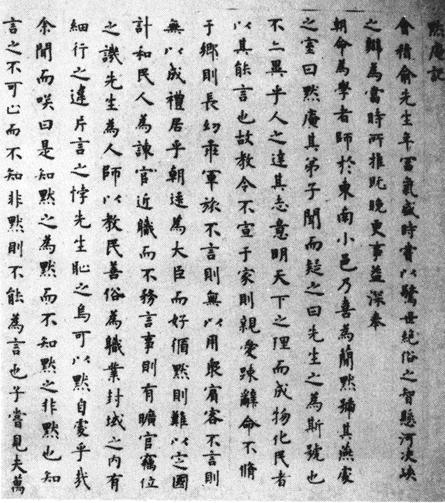 默庵記
會稽俞先生年富氣盛時嘗以驚世絶俗之智懸河決峽
之辯為當時所推既晚更事益深奉
朝命為學者師於東南小邑乃喜為簡默號其燕處
之室曰默庵其弟子聞而疑之曰先生之為斯號也
不亦異乎人之達其志意明天下之理而成物化民者
以其能言也故教令不宣于家則親愛踈辭命不脩
于鄉則長幼乖軍旅不言則無以用衆賓客不言則
無以成禮居乎朝廷為大臣而好循默則難以定國
計和民人為諫官近職而不務言事則有曠官竊位
之譏先生為人師以教民善俗為職業封域之內有
細行之違片言之悖先生恥之烏可以默自處乎哉
余聞而咲曰是知默之為默而不知默之非默也知
言之不可亡而不知非默則不能為言也子嘗見夫萬